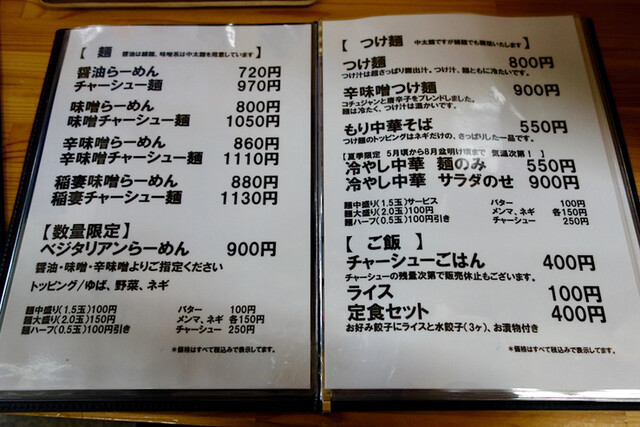 【 麺 】 醤油は細麺、味噌系は中太麺を用意しています
醤油らーめん 720円
チャーシュー麺 970円
味噌らーめん 800円
味噌チャーシュー麺 1050円
辛味噌らーめん 860円
辛味噌チャーシュー麺 1110円
稲妻味噌らーめん 880円
稲妻チャーシュー麺 1130円
【数量限定】
ベジタリアンらーめん 900円
醤油・味噌・辛味噌よりご指定ください
トッピング/ゆば、野菜、ネギ
麺中盛り(1.5玉)100円 バター 100円
麺大盛り(2.0玉)150円 メンマ、ネギ 各150円
麺ハーフ(0.5玉)100円引き チャーシュー 250円
＊価格はすべて税込みで表示してます。
【 つけ麺 】 中太麺ですが細麺でも御願いたします
つけ麺 800円
つけ汁は超さっぱり魚出汁。つけ汁、麺ともに冷たいです。
辛味噌つけ麺 900円
コチュジャンと唐辛子をブレンドしました。
麺は冷たく、つけ汁は温かいです。
もり中華そば 550円
つけ麺のトッピングはネギだけの、さっぱりした一品です。
【夏季限定 5月頃から8月盆明け頃まで 気温次第！ 】
冷やし中華 麺のみ 550円
冷やし中華 サラダのせ 900円
麺中盛り(1.5玉)サービス バター 100円
麺大盛り(2.0玉)100円 メンマ、ネギ 各150円
麺ハーフ(0.5玉)100円引き チャーシュー 250円
【 ご飯 】
チャーシューごはん 400円
チャーシューの残量次第で販売休止もございます。
ライス 100円
定食セット 400円
お好み餃子にライスと水餃子(3ヶ)、お漬物付き
＊価格はすべて税込みで表示してます。